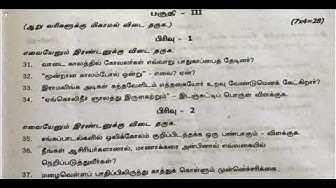 பகுதி - III
(ஆறு வரிகளுக்கு மிகாமல் விடை தருக.) (7x4=28)
பிரிவு - 1
எவையேனும் இரண்டனுக்கு விடை தருக.
31. வாடை காலத்தில் கோவலர்கள் எவ்வாறு பாதுகாப்பைத் தேடினர்?
32. "மூன்றான காலம்போல் ஒன்று" - எவை? ஏன்?
33. இராமலிங்க அடிகள் கந்தவேளிடம் எத்தகையோர் உறவு வேண்டுமெனக் கேட்கிறார்?
34. "ஏங்கொலிநீர் ஞாலத்து இருளகற்றும்" - இடஞ்சுட்டிப் பொருள் விளக்குக.
பிரிவு - 2
எவையேனும் இரண்டனுக்கு விடை தருக.
35. சங்கப்பாடல்களில் ஒலிக்கோலம் குறிப்பிடத்தக்க ஒரு பண்பாகும் - விளக்குக.
36. நீங்கள் ஆசிரியர்களானால், மாணாக்கரை அன்பினால் எவ்வகையில்
நெறிப்படுத்துவீர்கள்?
37. மழைவெள்ளப் பாதிப்பிலிருந்து காத்துக் கொள்ளும் முன்னெச்சரிக்கை